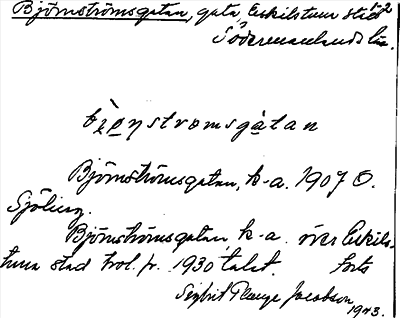 Björnströmsgatan, gata, Eskilstuna stad 1-2
Södermanlands län.
bjǫnstromsgàtan
Björnströmsgatan, k-a. 1907 O.
Sjöberg.
Björnströmsgatan, k-a. över Eskils-
tuna stad trol. fr. 1930 talet. forts
Sigbrit Plænge Jacobson
1943.